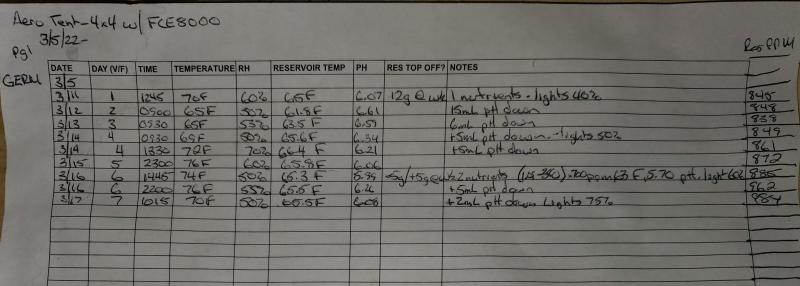 Aero Tent - 4x4 w/ FCE8000
3/5/22-
Pg 1
Res PPM
DATE DAY (V/F) TIME TEMPERATURE RH RESERVOIR TEMP PH RES TOP OFF? NOTES
GERM 3/5
3/11 1 1245 70F 60% 65F 6.07 12g 1 nutrients - lights 40% 845
3/12 2 0900 65F 50% 61.8F 6.61 15mL pH down 848
3/13 3 0930 65F 53% 63.5F 6.57 6mL pH down 838
3/14 4 0930 69F 50% 65.6F 6.34 +5mL pH down - lights 50% 849
3/14 4 1330 72F 70% 66.4F 6.21 +5mL pH down 861
3/15 5 2300 76F 60% 65.8F 6.06 872
3/16 6 1445 74F 50% 65.3F 5.99 2 nutrients 63F, 5.70 pH, light 60% 885
3/16 6 2200 76F 55% 65.5F +5mL pH down 962
3/17 7 1015 70F 50% 65.5F 6.08 +2mL pH down Lights 75% 984